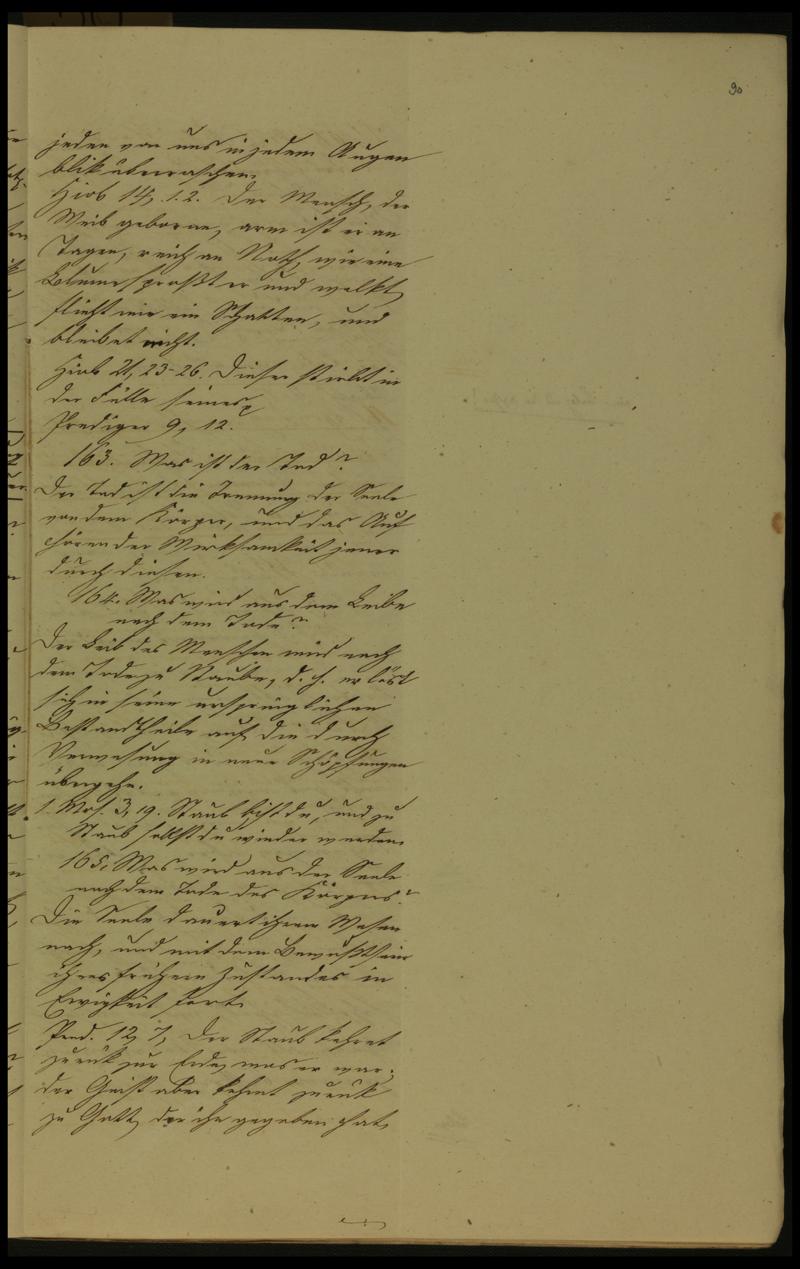 90
jeden von uns in jedem Augen
blik überraschen.
Hiob 14, 1.2. Der Mensch, der
Weib geborne, arm ist er an
Tagen, reich an Noth, wie eine
Blume sproßt er und welkt,
flieht wie ein Schatten, und
bleibet nicht.
Hiob 21, 23-26. Dieser stirbt in
der Fülle seines
Prediger 9, 12.
163. Was ist der Tod?
Der Tod ist die Trennung der Seele
von dem Körper, und das Auf
hören der Wirksamkeit jener
durch diesen.
164. Was wird aus dem Leibe
nach dem Tode?
Der Leib des Menschen wird nach
dem Tode zu Staube, d. h. er löst
sich in seine ursprünglichen
Bestandtheile auf, die durch
Verwesung in neue Schöpfungen
übergehn.
1. Mos. 3, 19. Staub bist du, und zu
Staub sollst du wieder werden.
165. Was wird aus der Seele
nach dem Tode des Körpers?
Die Seele dauert ihrem Wesen
nach, und mit dem Bewußtsein
ihres frühern Zustandes in
Ewigkeit fort.
Pred. 12, 7, Der Staub kehret
zurük zur Erde, was er war;
der Geist aber kehret zurük
zu Gott, der ihn gegeben hat,